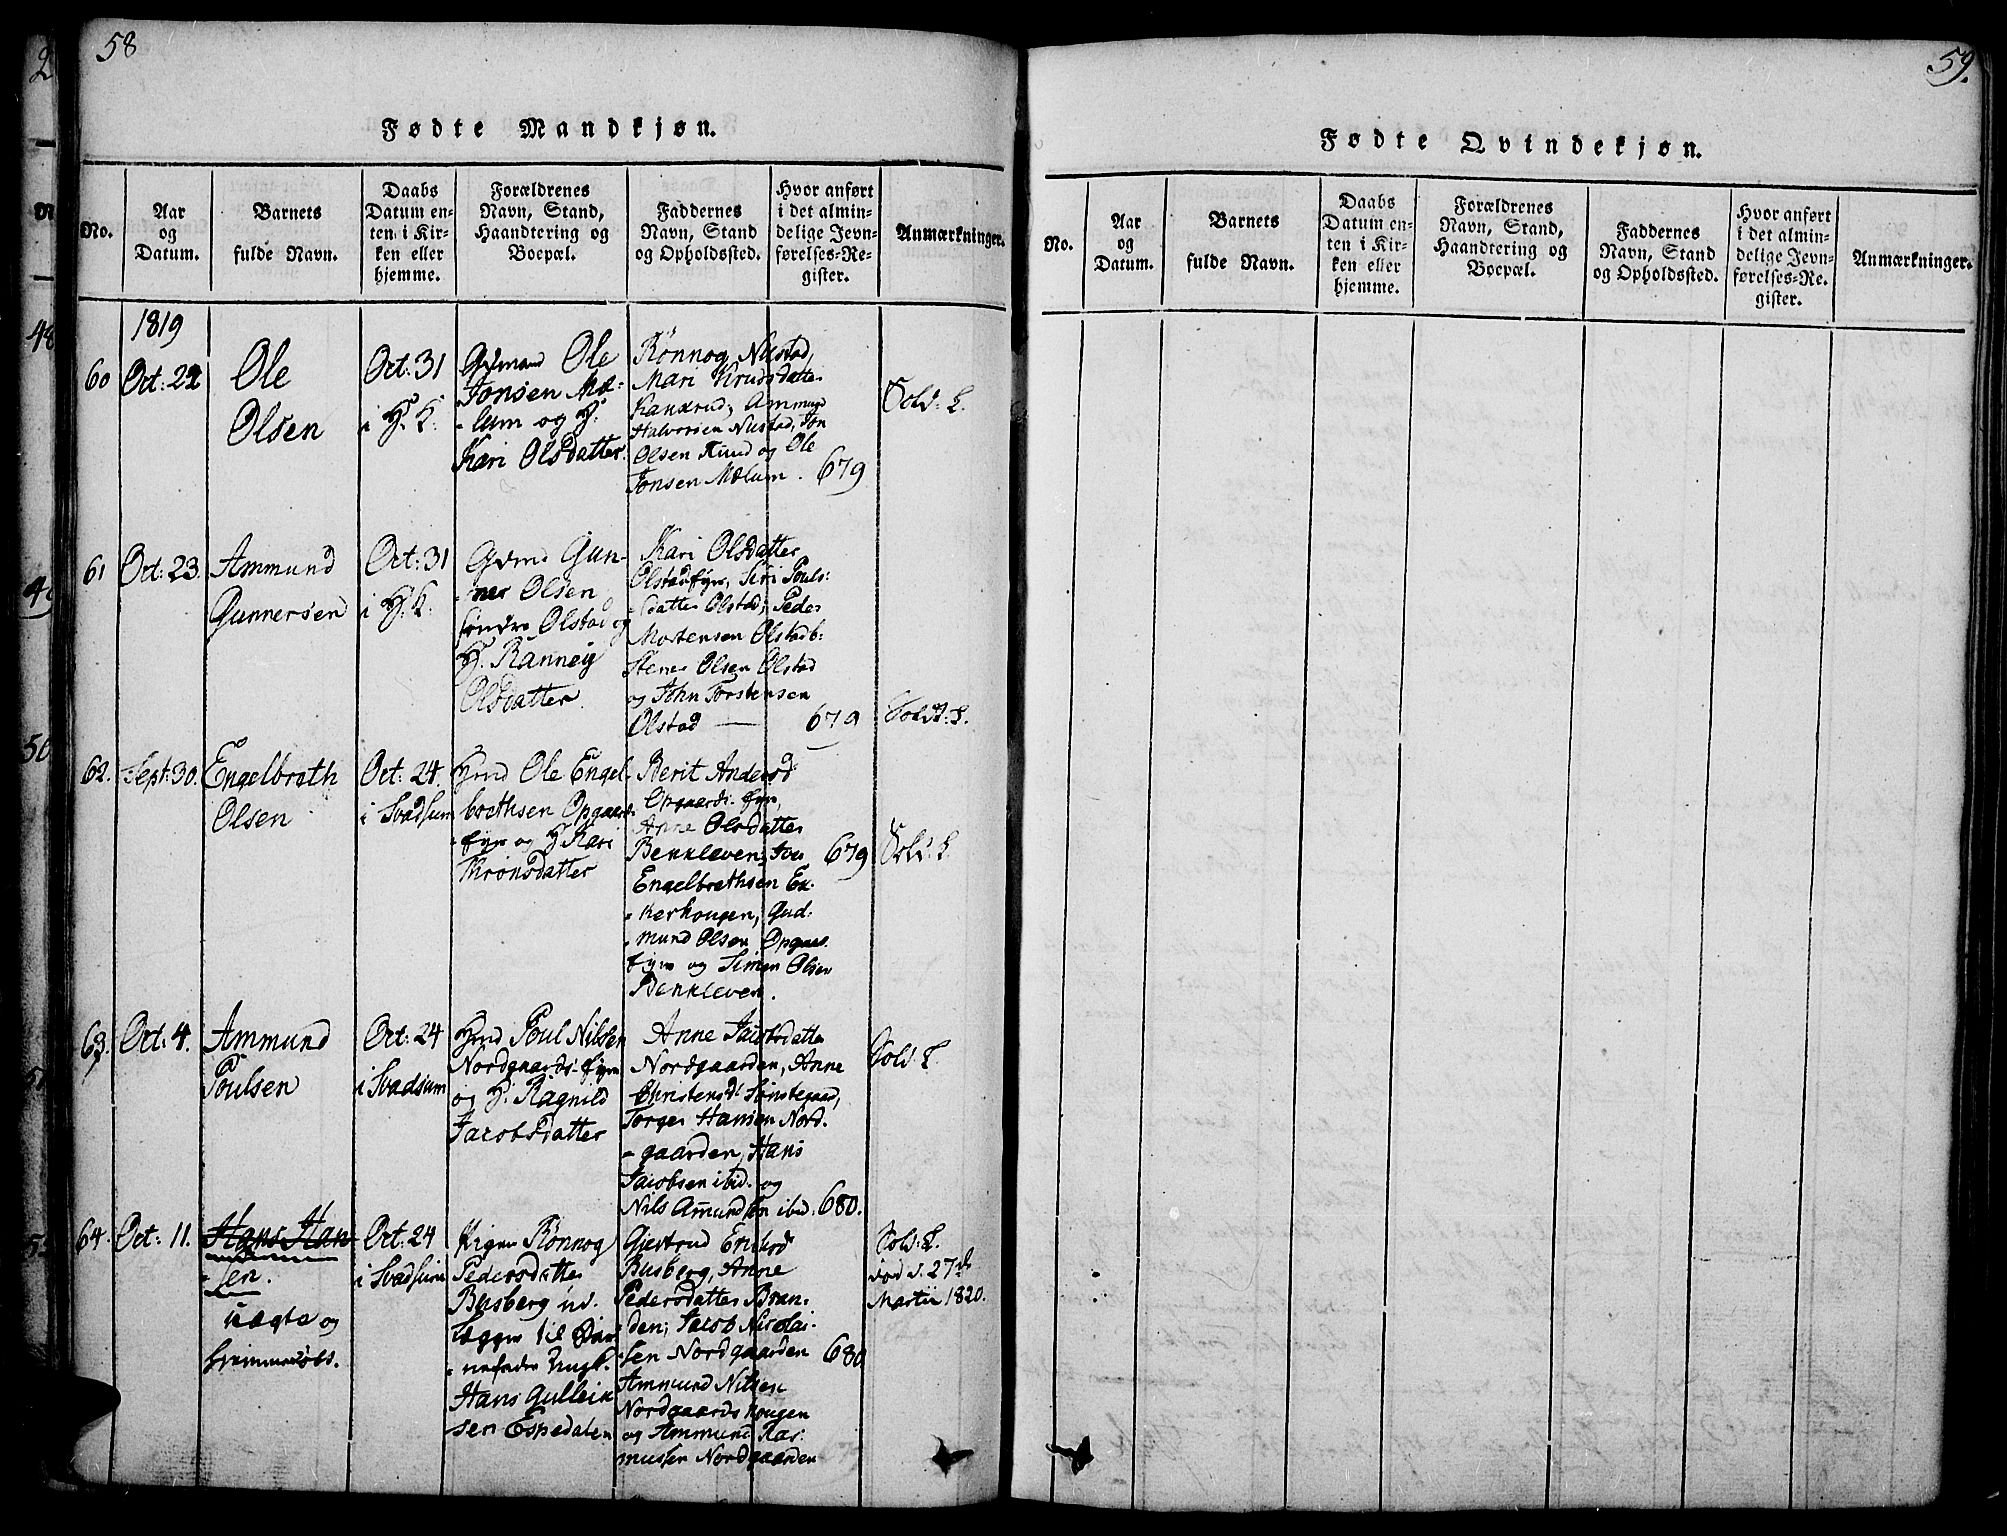 58
Fødte Mandkjøn.
No.
Aar
og
Datum.
Barnets
fulde Navn.
Daabs
Datum en-
ten i Kir-
ken eller
hjemme.
Forældrenes
Navn, Stand,
Haandtering og
Boepæl.
Faddernes
Navn, Stand
og Opholdssted.
Hvor anført
i det almin-
delige Jevn-
førelses-Re-
gister.
Anmærkninger.
1819
60
Oct: 22
Ole
Olsen
Oct: 31
i H. K.
Gdmand Ole
Jonsen Mæ-
-lum og H.
Kari Olsdatter.
Rönnog Nustad,
Mari Knudsdatter
Kankrud, Ammund
Halvorsen Nustad, Jon
Olsen Ruud og Ole
Jonsen Mælum.
679
Sold. L.
61
Oct: 23.
Ammund
Gunnersen
Oct: 31
i H. K.
Gdmd Gun-
-ner Olsen
söndre Olstad og
H. Rannei
Olsdatter.
Kari Olsdatter
Olstadeje, Siri Pouls-
-datter Olstad, Peder
Mortensen Olstadb:
Stener Olsen Olstad
og John Torstensen
Olstad
679
Sold. L.
62.
Sept: 30.
Engelbreth
Olsen
Oct: 24.
i Svadsum
Hmd Ole Engel-
brethsen Opgaards-
-eje og H. Kari
Thronsdatter
Berit Andersd:
Opgaards-eje,
Anne Olsdatter
Benkleven, Iver
Engelbrethsen Ek-
-kerhougen, Gud-
-mund Olsen Opgaar.
eje og Simen Olsen
Benkleven.
679
Sold. L.
63.
Oct: 4.
Ammund
Poulsen
Oct: 24
i Svadsum
Hmd Poul Nilsen
Nordgaards-eje
og H. Ragnild
Jacobsdatter
Anne Jacobsdatter
Nordgaarden, Anne
Christensd: Sönstegaard,
Torger Hansen Nord-
-gaarden, Hans
Jacobsen ibid. og
Nils Amundsen ibid.
680.
Sold. L.
64.
Oct: 11.
Hans Han-
-sen.
uægte og
Oct: 24
i Svadsum
Pigen Rönnog
Pedersdatter
Busberg ud-
lægger til Bar-
-nefader Ungk.
Hans Gulleik
sen Espedalen
Gjertrud
Busberg, Anne
Pedersdatter Bran-
-den; Jacob Nicolai-
-sen Nordgaarden
Ammund Nilsen
Nordgaards hougen
og Ammund Ras-
musen Nordgaarden
680
Sold. L.
död d. 27de
Martii 1820.
59.
Fødte Qvindekjøn.
No.
Aar
og
Datum.
Barnets
fulde Navn.
Daabs
Datum en-
ten i Kir-
ken eller
hjemme.
Forældrenes
Navn, Stand,
Haandtering og
Boepæl.
Faddernes
Navn, Stand
og Opholdssted.
Hvor anført
i det almin-
delige Jevn-
førelses-Re-
gister.
Anmærkninger.